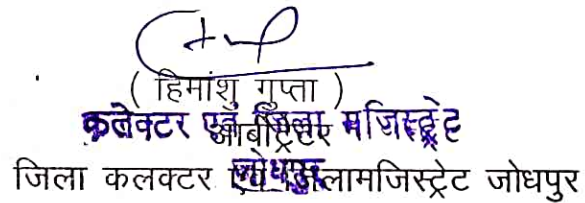 ( हिमांशु गुप्ता )
कलेक्टर एवं जिला मजिस्ट्रेट
आर्बीट्रेटर
जोधपुर
जिला कलक्टर एवं जिलामजिस्ट्रेट जोधपुर